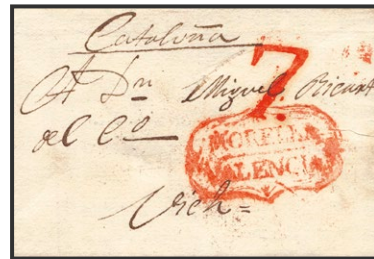 Cataluña
7.
A Dn Miguel Ricart
del Co
MORELLA
VALENCIA
Vich=